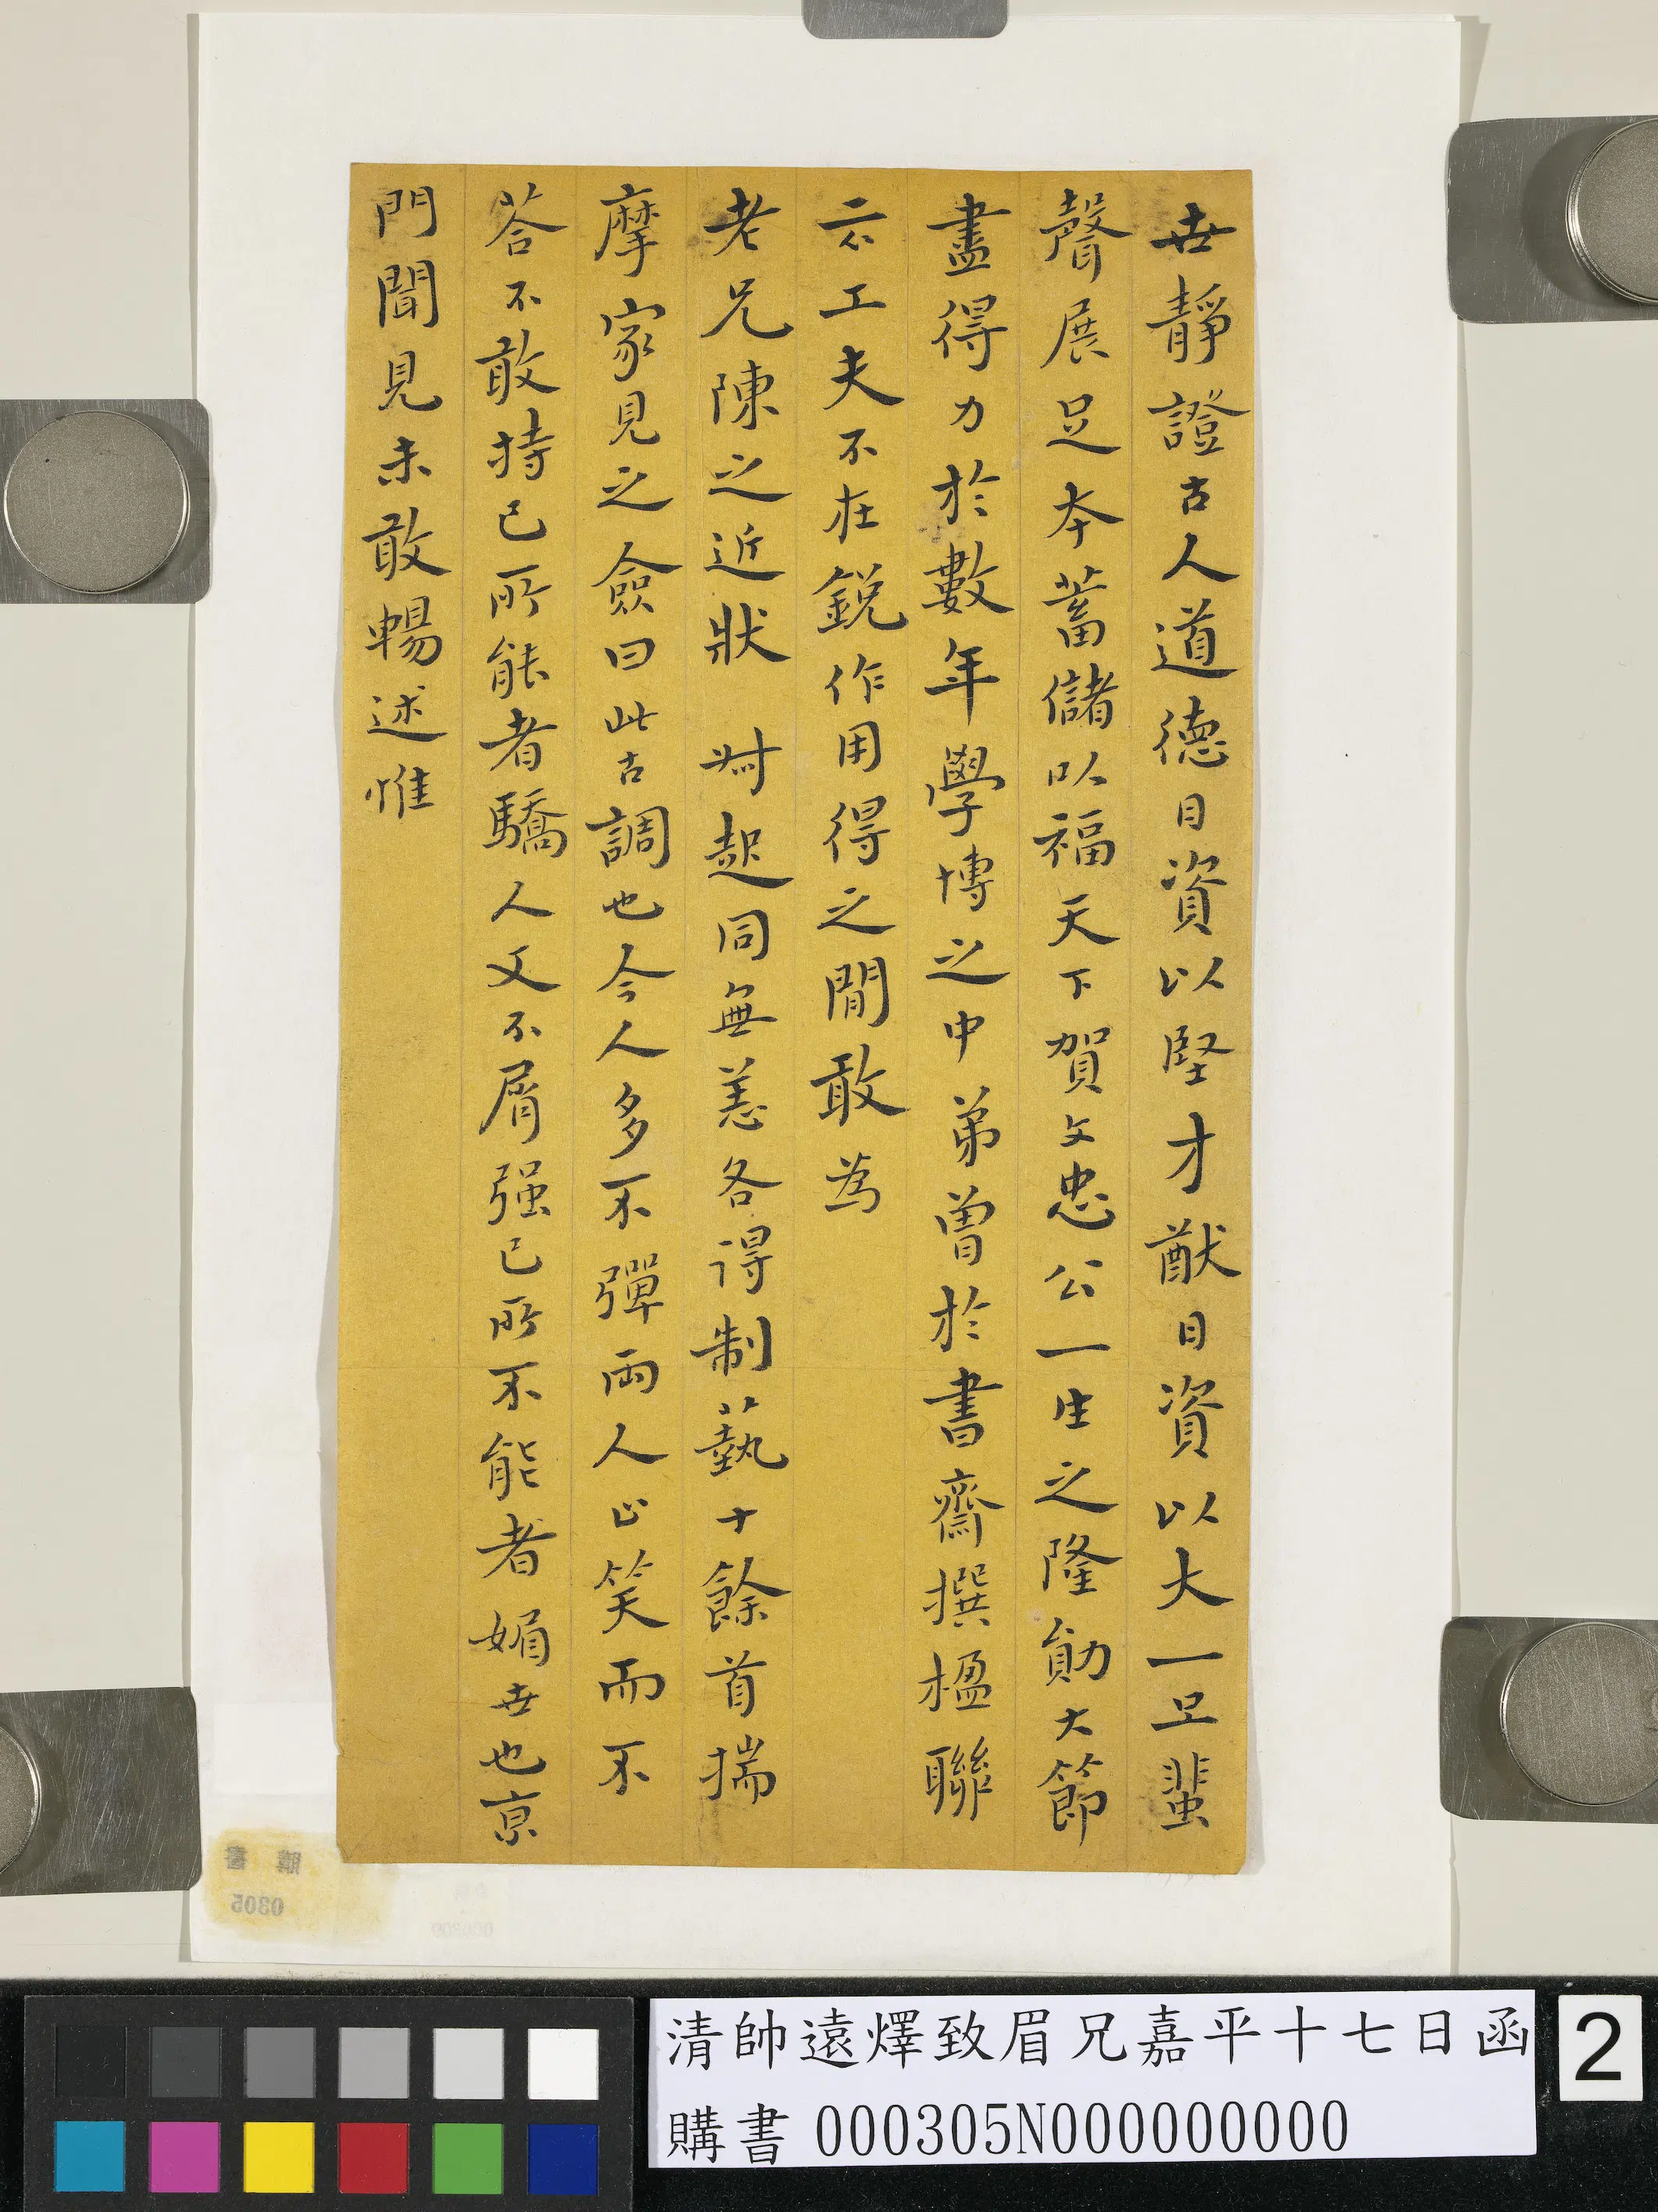 世靜證古人道德日資以堅才猷日資以大一旦蜚
聲展足本蓄儲以福天下賀文忠公一生之隆勛大節
盡得力於數年學博之中弟曾於書齋撰楹聯
云不工夫不在銳作用得之閒敢為
老兄陳之近狀 對起同無恙各得制藝十餘首揣
摩家見之僉曰此古調也今人多不彈兩人亦笑而不
答不敢持己所能者驕人又不屑强己所不能者媚世也京
門聞見未敢暢述惟
清帥遠燡致眉兄嘉平十七日函
購書 000305N000000000
2
購書
0305